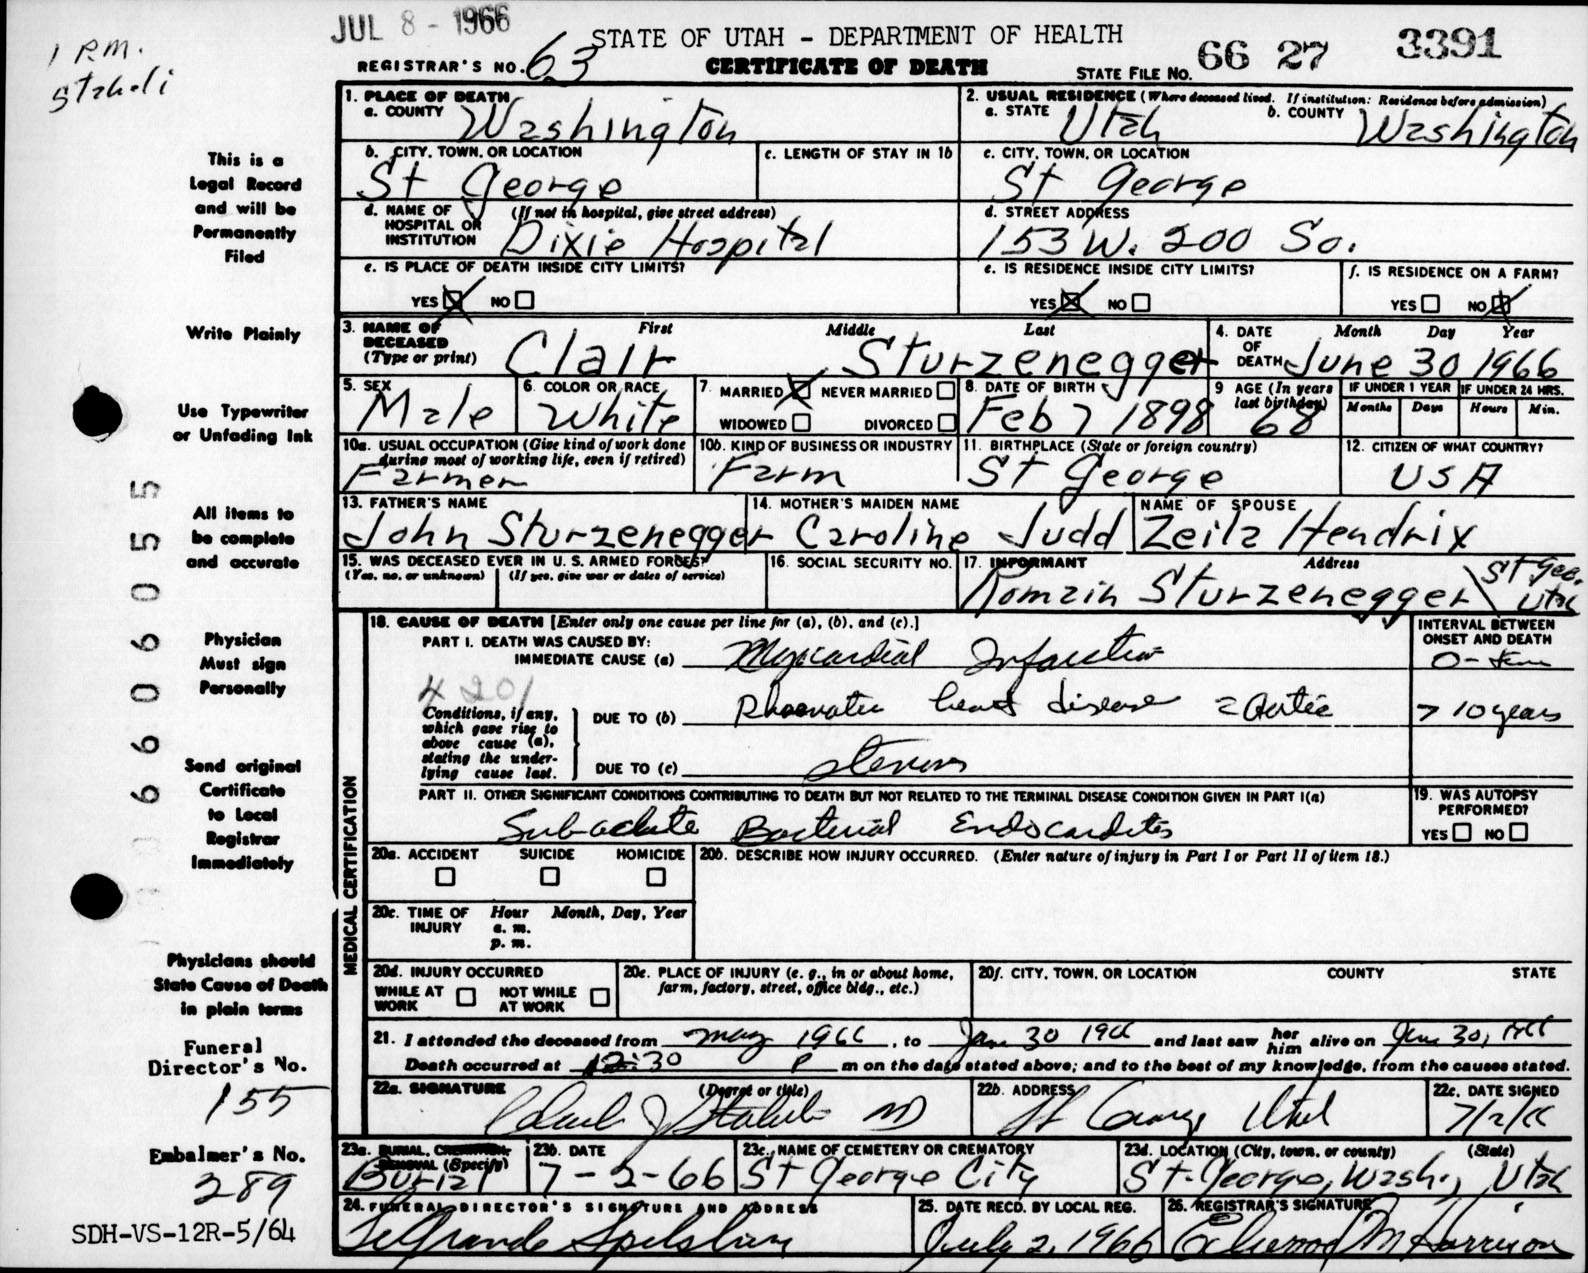 JUL 8 - 1966
1 P.M.
Stzheli
STATE OF UTAH - DEPARTMENT OF HEALTH
REGISTRAR'S NO. 63
CERTIFICATE OF DEATH
STATE FILE NO. 66 27 3391
1. PLACE OF DEATH
a. COUNTY Washington
2. USUAL RESIDENCE (Where deceased lived. If institution: Residence before admission)
a. STATE Utah b. COUNTY Washington
b. CITY, TOWN, OR LOCATION St George
c. LENGTH OF STAY IN 1b
c. CITY, TOWN, OR LOCATION St George
d. NAME OF HOSPITAL OR INSTITUTION (If not in hospital, give street address) Dixie Hospital
d. STREET ADDRESS 153 W. 200 So.
e. IS PLACE OF DEATH INSIDE CITY LIMITS?
YES NO
e. IS RESIDENCE INSIDE CITY LIMITS?
YES NO
f. IS RESIDENCE ON A FARM?
YES NO
3. NAME OF DECEASED (Type or print) First Middle Last
Clair Sturzenegger
4. DATE OF DEATH Month Day Year
June 30 1966
5. SEX Male
6. COLOR OR RACE White
7. MARRIED NEVER MARRIED
WIDOWED DIVORCED
8. DATE OF BIRTH Feb 7 1898
9 AGE (In years last birthday) 68
IF UNDER 1 YEAR Months Days
IF UNDER 24 HRS. Hours Min.
10a. USUAL OCCUPATION (Give kind of work done during most of working life, even if retired)
Farmer
10b. KIND OF BUSINESS OR INDUSTRY Farm
11. BIRTHPLACE (State or foreign country) St George
12. CITIZEN OF WHAT COUNTRY? USA
13. FATHER'S NAME John Sturzenegger
14. MOTHER'S MAIDEN NAME Caroline Judd
NAME OF SPOUSE Zeila Hendrix
15. WAS DECEASED EVER IN U. S. ARMED FORCES?
(Yes, no, or unknown) (If yes, give war or dates of service)
16. SOCIAL SECURITY NO.
17. INFORMANT Address
Romain Sturzenegger St Geo. Utah
18. CAUSE OF DEATH [Enter only one cause per line for (a), (b), and (c).]
INTERVAL BETWEEN ONSET AND DEATH
PART I. DEATH WAS CAUSED BY:
IMMEDIATE CAUSE (a) Myocardial Infarction
4201
Conditions, if any, which gave rise to above cause (a), stating the underlying cause last.
DUE TO (b) Rheumatic heart disease c Aortic > 10 years
DUE TO (c) Stenosis
PART II. OTHER SIGNIFICANT CONDITIONS CONTRIBUTING TO DEATH BUT NOT RELATED TO THE TERMINAL DISEASE CONDITION GIVEN IN PART I(a)
Sub-acute Bacterial Endocarditis
19. WAS AUTOPSY PERFORMED?
YES NO
20a. ACCIDENT SUICIDE HOMICIDE
20b. DESCRIBE HOW INJURY OCCURRED. (Enter nature of injury in Part I or Part II of item 18.)
20c. TIME OF INJURY Hour Month, Day, Year
a. m.
p. m.
20d. INJURY OCCURRED
WHILE AT WORK NOT WHILE AT WORK
20e. PLACE OF INJURY (e. g., in or about home, farm, factory, street, office bldg., etc.)
20f. CITY, TOWN, OR LOCATION COUNTY STATE
21. I attended the deceased from May 1966, to June 30 1966 and last saw her him alive on June 30, 1966
Death occurred at 12:30 P m on the date stated above; and to the best of my knowledge, from the causes stated.
22a. SIGNATURE (Degree or title) MD
22b. ADDRESS St George Utah
22c. DATE SIGNED 7/2/66
23a. BURIAL, CREMATION, REMOVAL (Specify) Burial
23b. DATE 7-2-66
23c. NAME OF CEMETERY OR CREMATORY St George City
23d. LOCATION (City, town, or county) (State)
St. George, Wash., Utah
24. FUNERAL DIRECTOR'S SIGNATURE AND ADDRESS
LeGrande Spilsbury
25. DATE RECD. BY LOCAL REG. July 2, 1966
26. REGISTRAR'S SIGNATURE M Harrison
MEDICAL CERTIFICATION
This is a
Legal Record
and will be
Permanently
Filed
Write Plainly
Use Typewriter
or Unfading Ink
All items to
be complete
and accurate
Physician
Must sign
Personally
Send original
Certificate
to Local
Registrar
Immediately
Physicians should
State Cause of Death
in plain terms
Funeral
Director's No.
155
Embalmer's No.
289
SDH-VS-12R-5/64
6606055